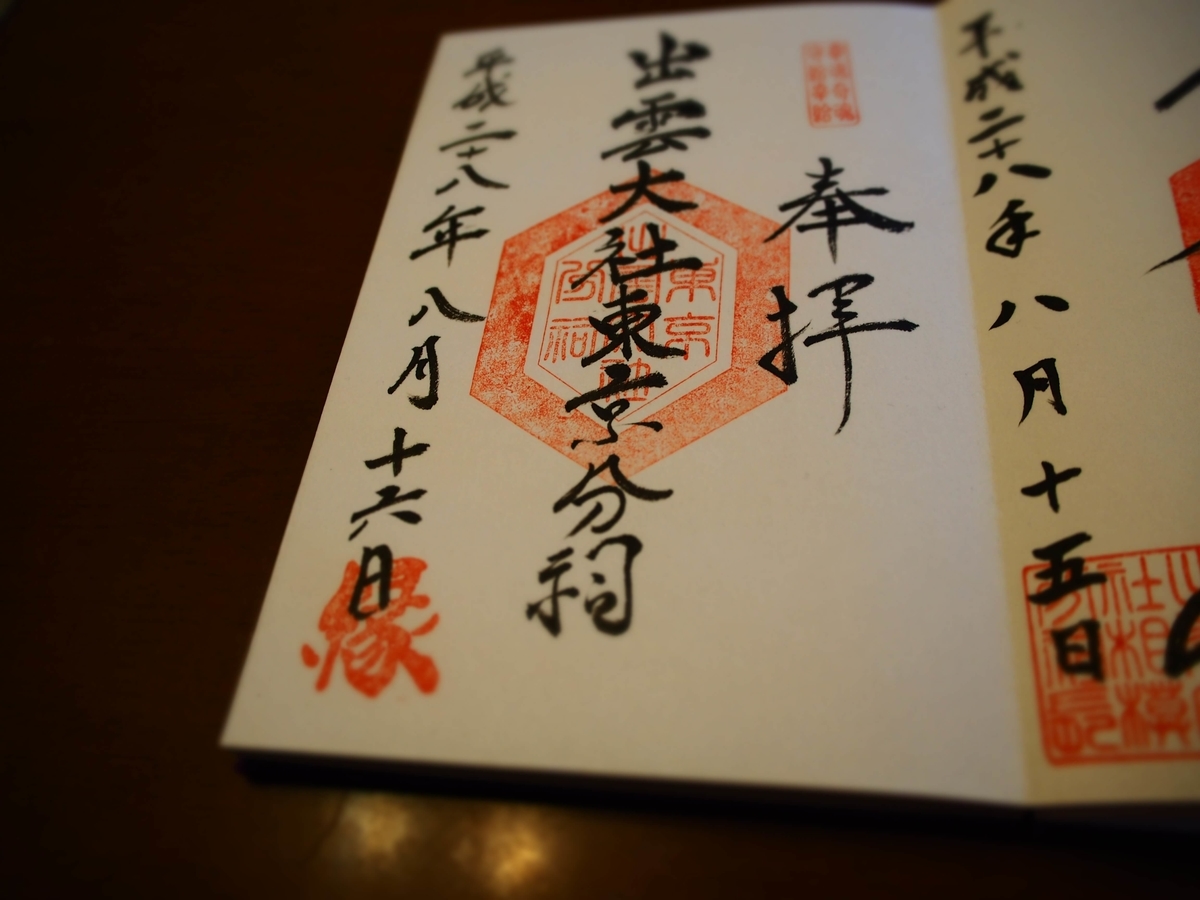 平成二十八年八月十五日
奉拝
出雲大社東京分祠
平成二十八年八月十六日
縁
東京
分祠
社相模